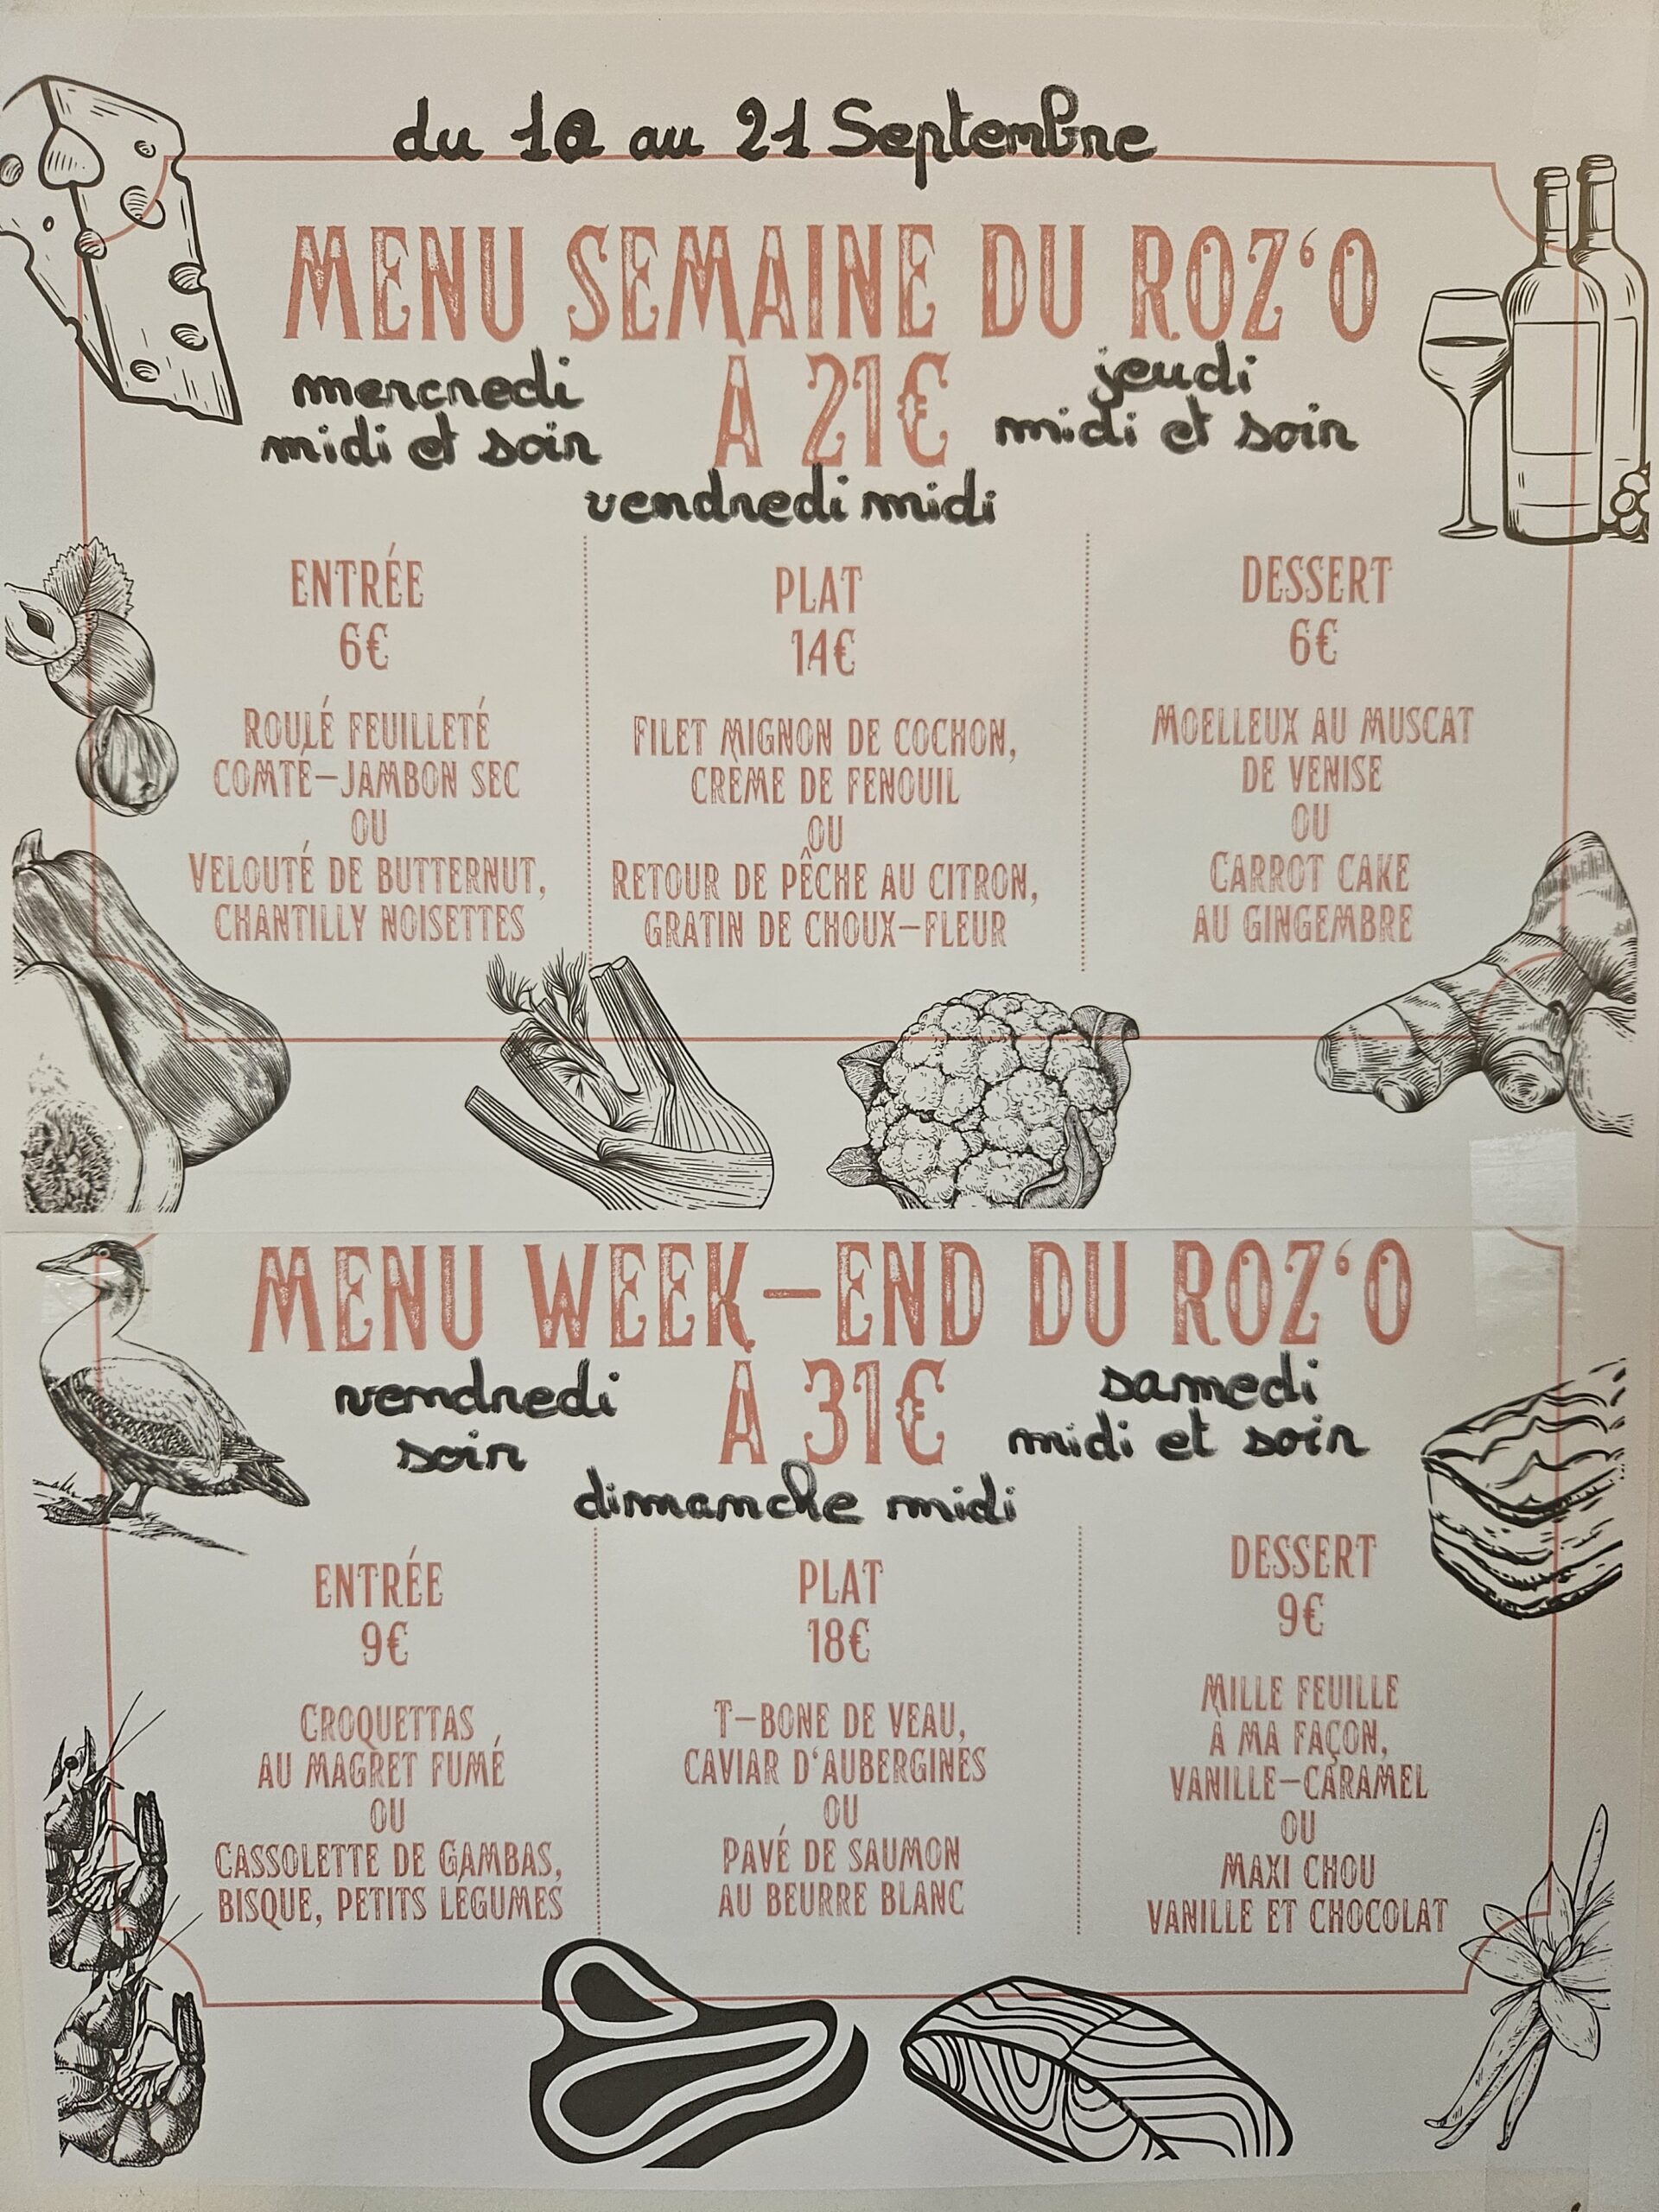 du 10 au 21 Septembre
MENU SEMAINE DU ROZ'O
À 21€
mercredi
midi et soir
jeudi
midi et soir
vendredi midi
ENTRÉE
6€
ROULÉ FEUILLETÉ
COMTÉ-JAMBON SEC
OU
VELOUTÉ DE BUTTERNUT,
CHANTILLY NOISETTES
PLAT
14€
FILET MIGNON DE COCHON,
CRÈME DE FENOUIL
OU
RETOUR DE PÊCHE AU CITRON,
GRATIN DE CHOUX-FLEUR
DESSERT
6€
MOELLEUX AU MUSCAT
DE VENISE
OU
CARROT CAKE
AU GINGEMBRE
MENU WEEK-END DU ROZ'O
À 31€
vendredi
soir
samedi
midi et soir
dimanche midi
ENTRÉE
9€
CROQUETTAS
AU MAGRET FUMÉ
OU
CASSOLETTE DE GAMBAS,
BISQUE, PETITS LÉGUMES
PLAT
18€
T-BONE DE VEAU,
CAVIAR D'AUBERGINES
OU
PAVÉ DE SAUMON
AU BEURRE BLANC
DESSERT
9€
MILLE FEUILLE
À MA FAÇON,
VANILLE-CARAMEL
OU
MAXI CHOU
VANILLE ET CHOCOLAT